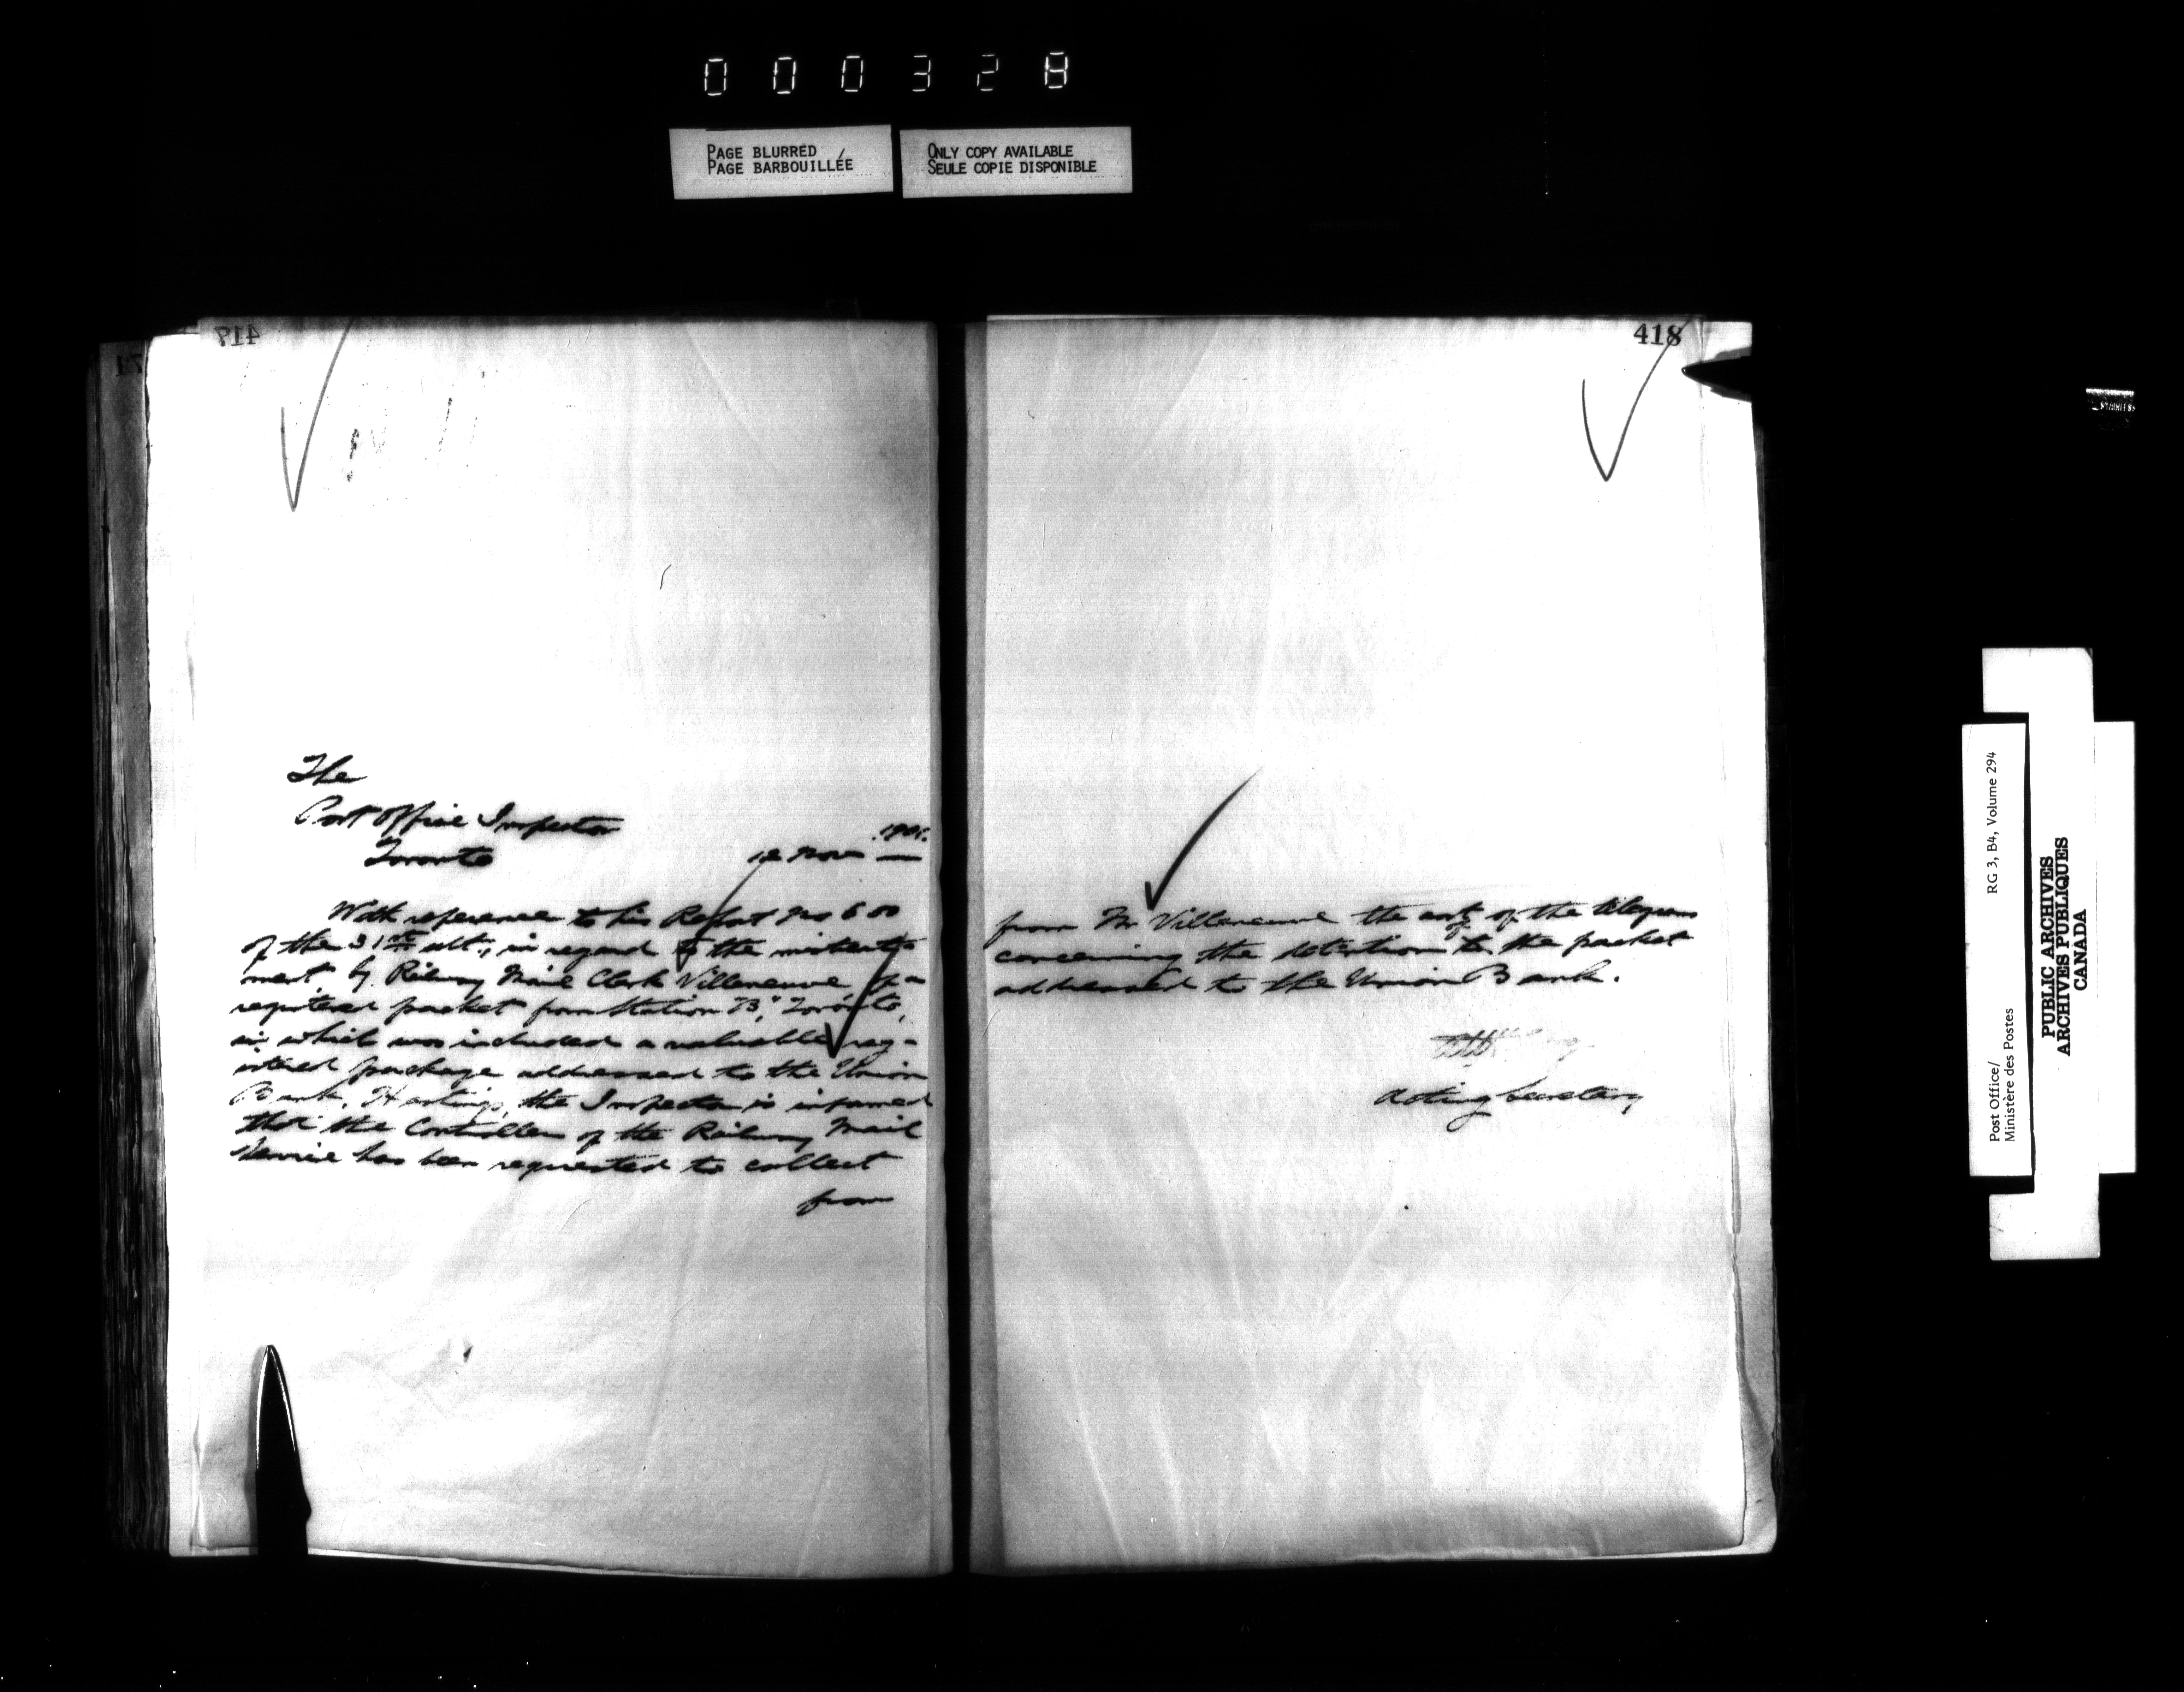 000328
PAGE BLURRED
PAGE BARBOUILLÉE
ONLY COPY AVAILABLE
SEULE COPIE DISPONIBLE
417
The
Post Office Inspector
Toronto
12 Nov 1901.
With reference to his Report No 600
of the 31st ult., in regard to the mistreat-
ment by Railway Mail Clerk Villeneuve of a
registered packet from Station "B", Toronto,
in which was included a valuable reg-
istered package addressed to the Union
Bank, Hastings, the Inspector is informed
that the Controller of the Railway Mail
Service has been requested to collect
from
418
from Mr Villeneuve the cost of the telegram
concerning the detention to the packet
addressed to the Union Bank.
Acting Secretary
Post Office/
Ministère des Postes
RG 3, B4, Volume 294
PUBLIC ARCHIVES
ARCHIVES PUBLIQUES
CANADA